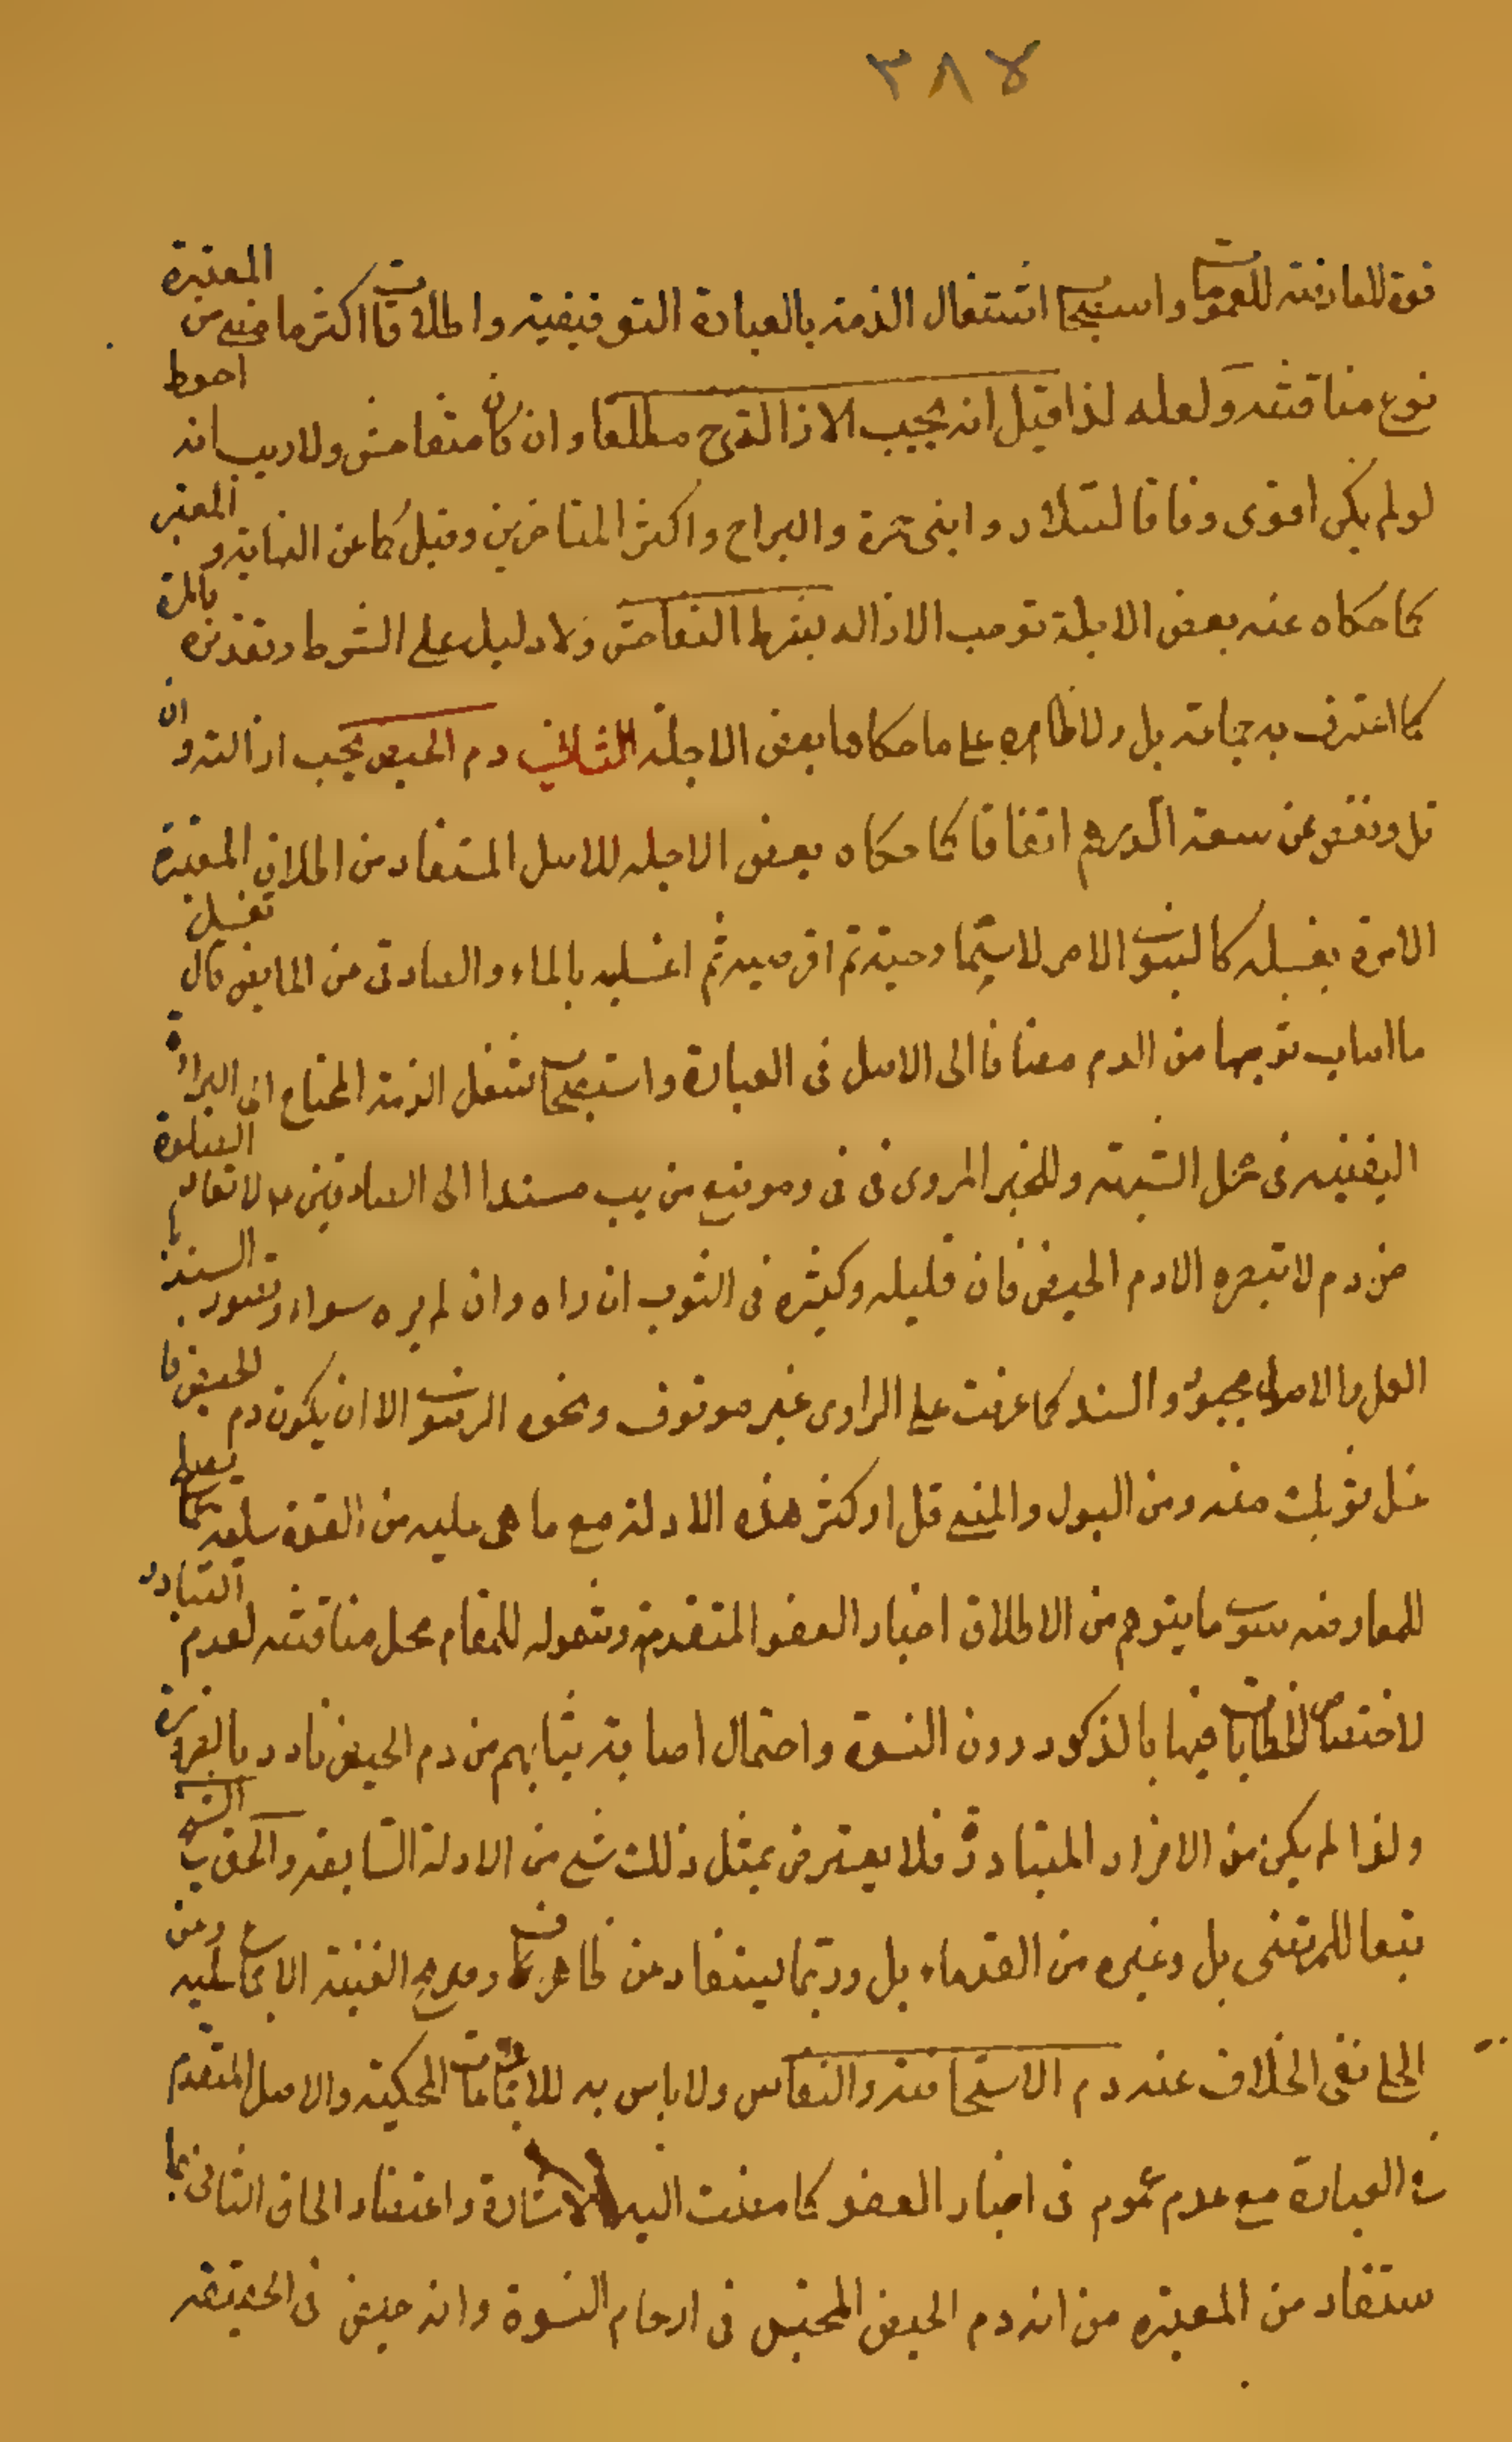 ٣٨٧
قوة المعارضة للعمومات واستصحاب اشتغال الذمة بالعبادة التوقيفية واطلاقات اكثر ما مضى من المعتبرة
نوع مناقشة ولعله لذا قيل انه يجب الازالة مطلقا وان كان متفاحش ولا ريب انه احوط
لو لم يكن اقوى وفاقا لسلار وابن حمزة والسرائر واكثر المتاخرين وقيل كما عن النهاية و المعتبر
كما حكاه عنه بعض الاجلة توجب الازالة بشرط التفاحش ولا دليل على الشرط وتقديره بالمرة
كما اعترف به جماعة بل ولا ظاهره على ما حكاها بعض الاجلة الثاني دم الحيض يجب ازالته و ان
قل ونقص عن سعة الدرهم اتفاقا كما حكاه بعض الاجله للاصل المستفاد من اطلاق المعتبرة
الامرة بغسله كالنبوي الامر لاسيما وحتيه ثم اقرصيه ثم اغسليه بالماء والصادق عن الحايض قال تغسل
ما اصاب ثوبها من الدم مضافا الى الاصل في العبادة واستصحاب شغل الذمة المحتاج الى البراءة
اليقينيه في مثل الشبهة وللخبر المروي في في وموضع من يب مسندا الى الصادقين ع لا تعاد الصلوة
من دم لا تبصره الا دم الحيض فان قليله وكثيره في الثوب ان راه وان لم يره سواء وقصور السند
العمل بالاصل مجبور والسند كما عرفت على الراوي غير موقوف ونحوه الرضوي الا ان يكون دم الحيض فا
غسل ثوبك منه ومن البول والمني قل او كثر هذه الادلة مع ما هي عليه من القوة سليمة عما يصلح
للمعارضه سوى ما يتوهم من الاطلاق اخبار العفو المتقدمة وشموله للمقام محل مناقشه لعدم التبادر
لاختصاص الخطابات فيها بالذكور دون النسوة واحتمال اصابة ثيابهم من دم الحيض نادر بالضرورة
ولذا لم يكن من الافراد المتبادرة فلا يعترض بمثل ذلك شئ من الادلة السابقه والحق به الشيخ
تبعا للمرتضى بل وغيره من القدماء بل وربما يستفاد من ظاهر ف وصريح الغنية الاجماع عليه وعن
الحلي نفي الخلاف عنه دم الاستحاضة والنفاس ولا باس به للاجماعات المحكية والاصل المتقدم
في العبادة مع عدم عموم في اخبار العفو كما مضت اليه الاشارة واعتضاد الحاق الثاني بما
ستفاد من المعتبره من انه دم الحيض المحتبس في ارحام النسوة وانه حيض في الحقيقه